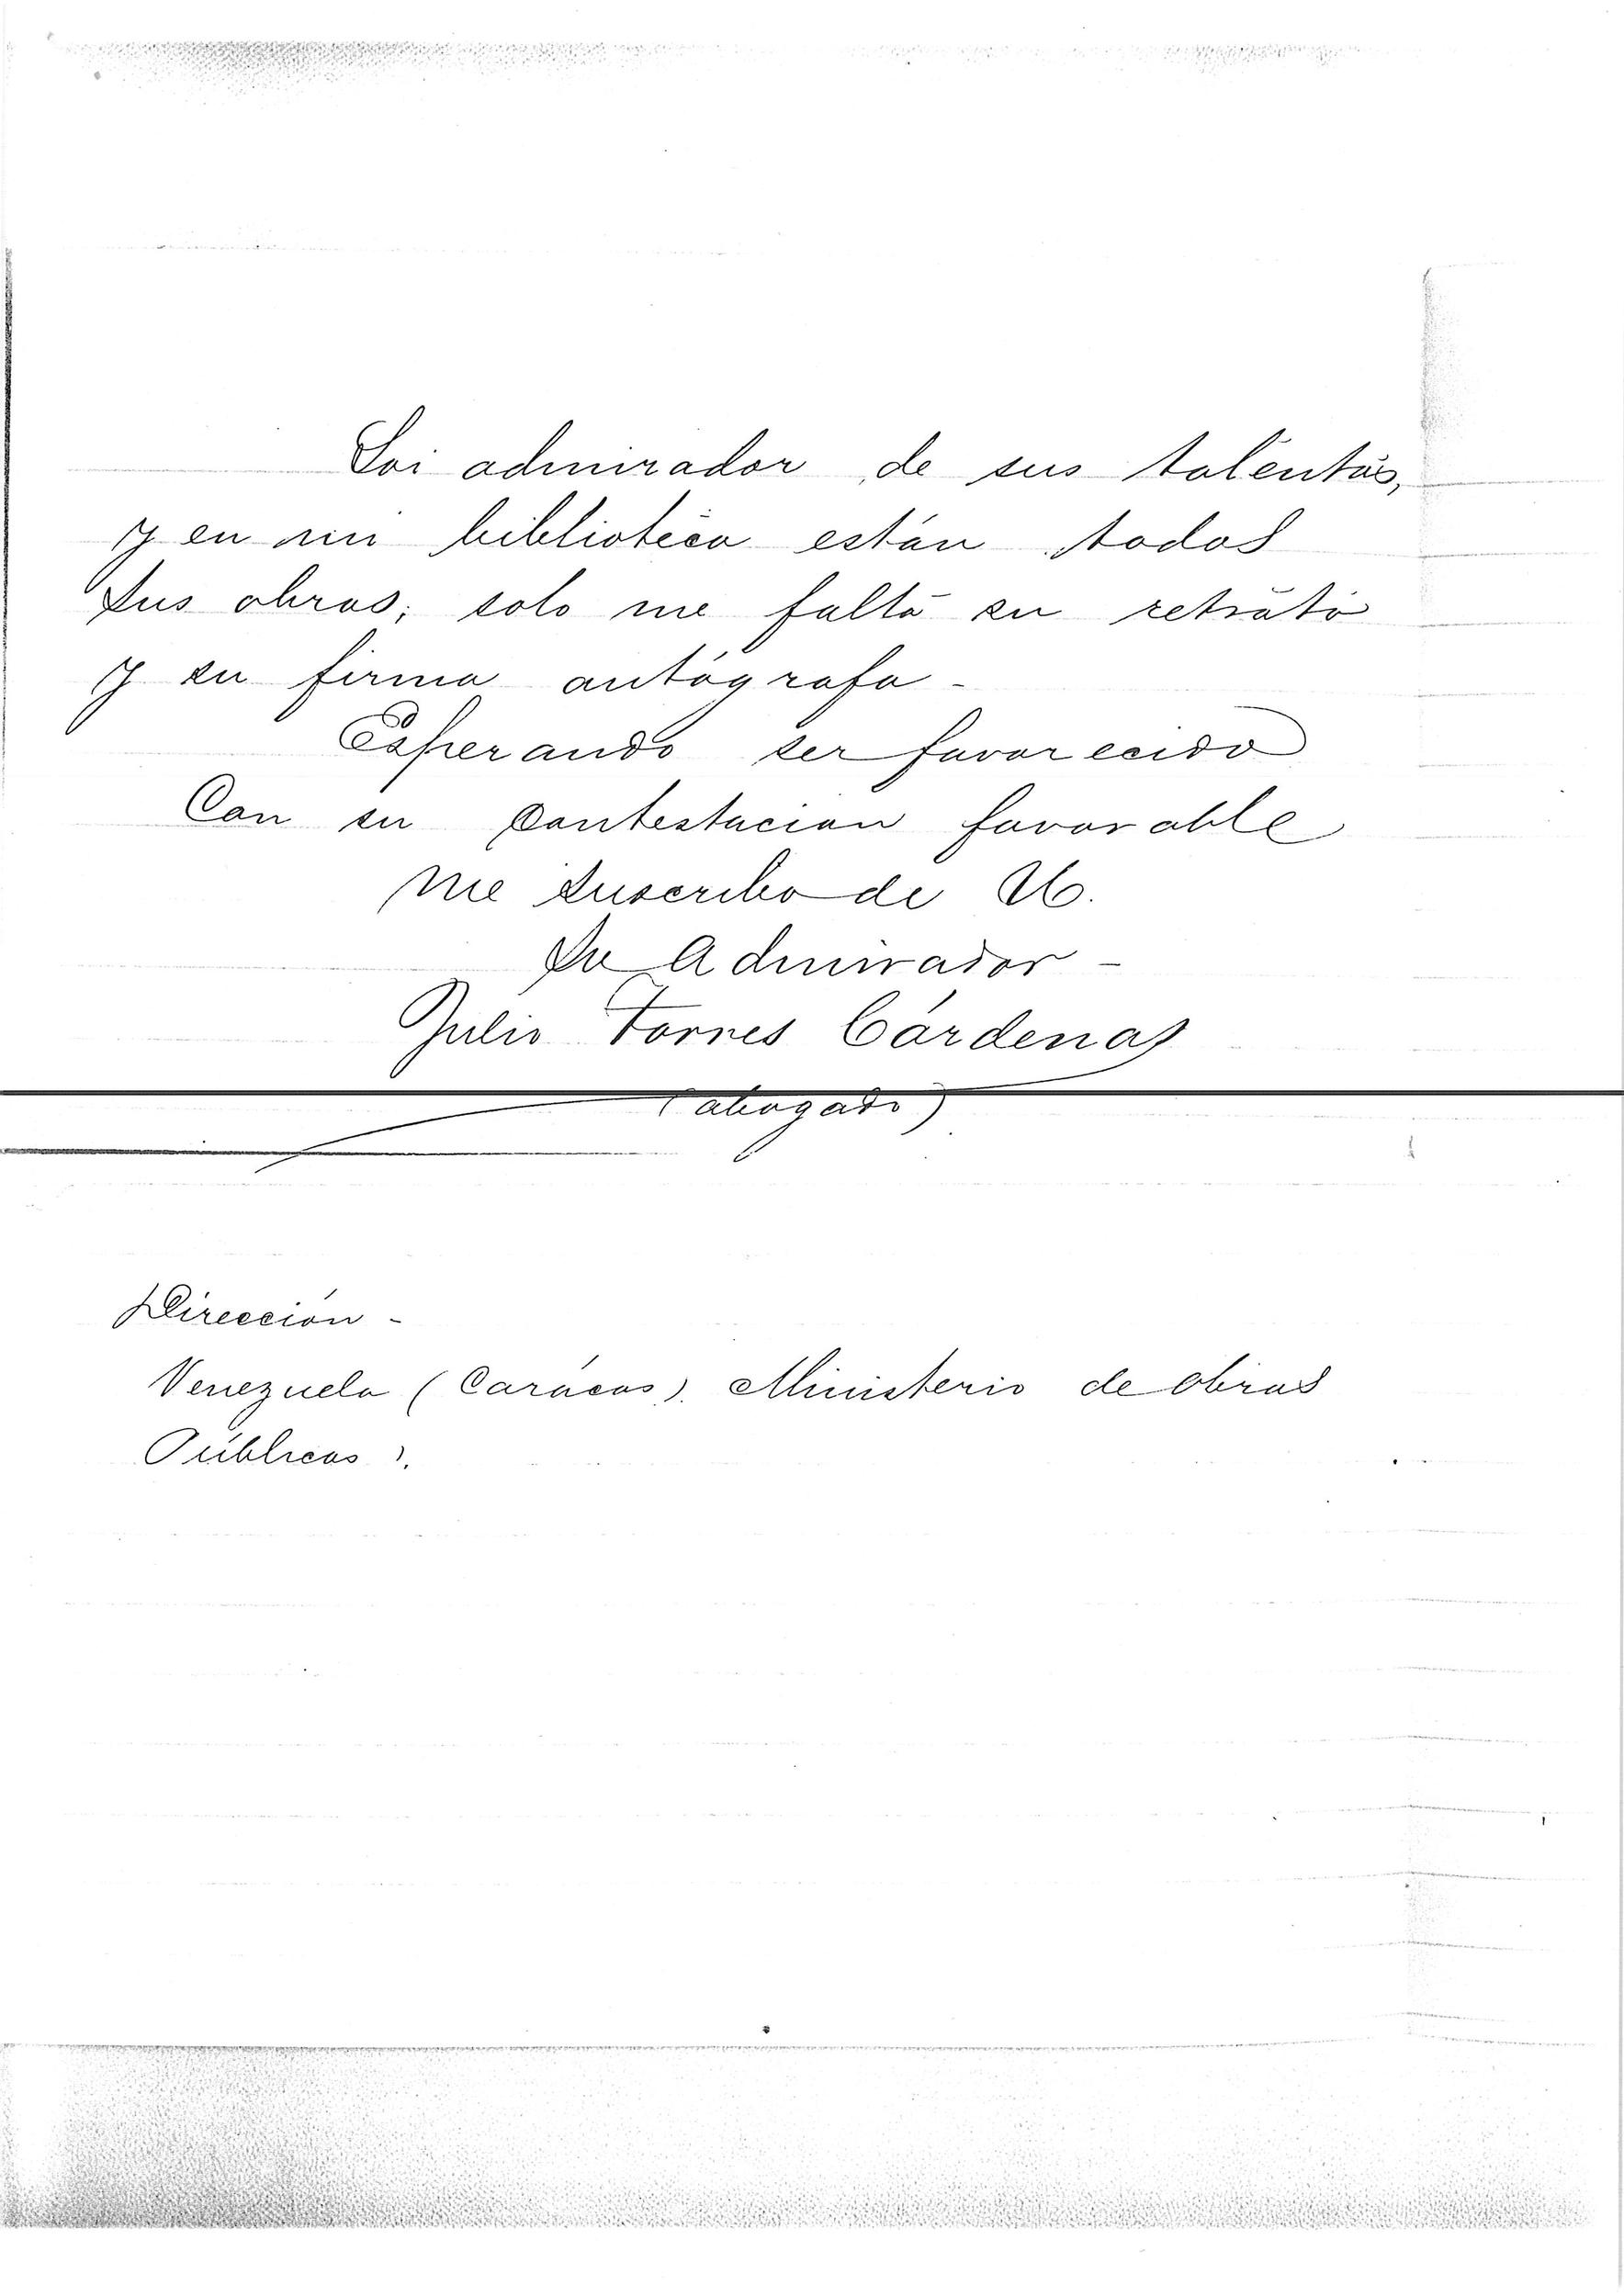 Soi admirador de sus talentos,
y en mi biblioteca están todas
sus obras; solo me falta su retrato
y su firma autógrafa -
Esperando ser favorecido
Con su contestacion favorable
me suscribo de U.
Su Admirador -
Julio Torres Cárdenas
(abogado)
Dirección -
Venezuela (Carácas). Ministerio de obras
Públicas).